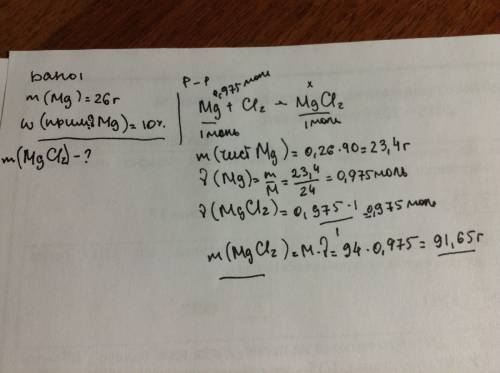 Дано:
m(Mg)=26г
w(прим, Mg)=10%
m(MgCl2)-?
Р-р
0,975моль x
Mg + Cl2 → MgCl2
1моль 1моль
m(чист Mg)=0,26·90=23,4г
ν(Mg)=m/M=23,4/24=0,975моль
ν(MgCl2)=0,975·1/1=0,975моль
m(MgCl2)=M·ν=94·0,975=91,65г